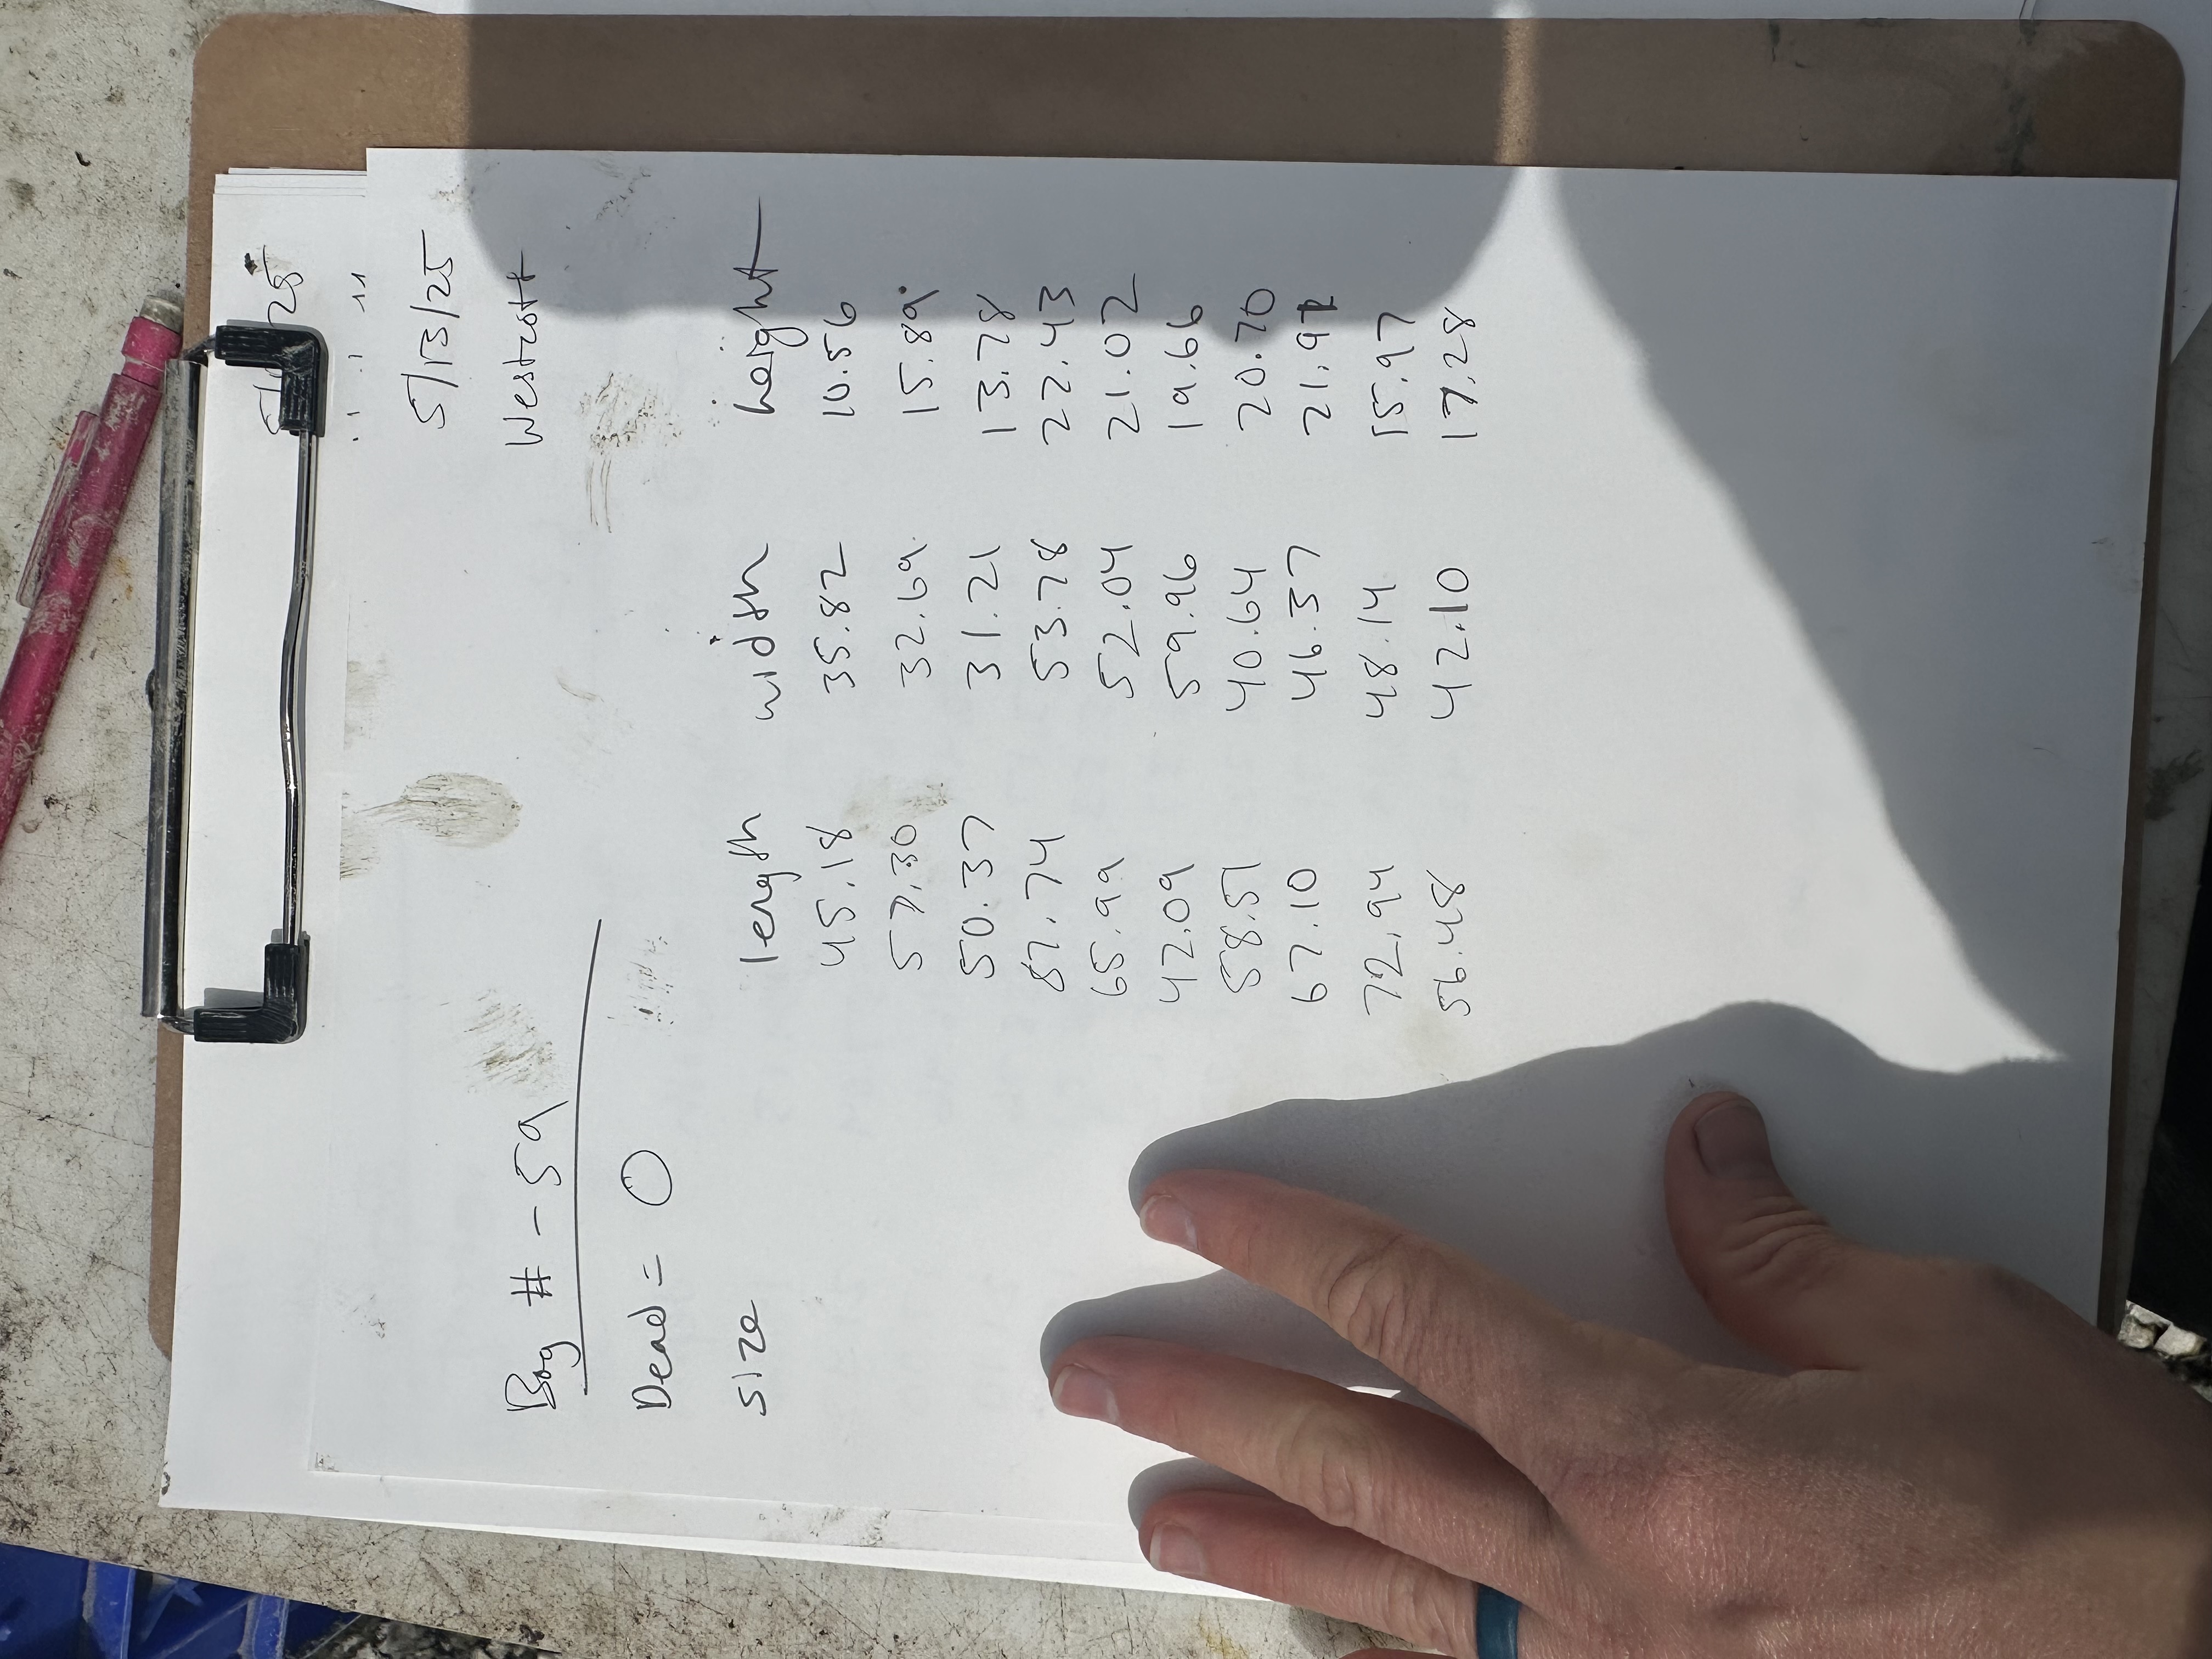 5/13/25
Westcott
Bag # - 59
Dead = 0
size length width height
45.18 35.82 10.56
57.30 32.69 15.89
50.37 31.21 13.78
87.74 53.78 22.43
65.99 52.04 21.02
42.09 59.96 19.66
58.51 40.64 20.70
67.10 46.37
72.94 48.14 15.97
56.48 42.10 17.28